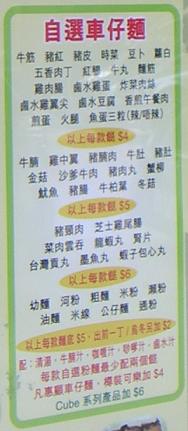 自選車仔麵
牛筋 豬紅 豬皮 時菜 豆卜 蘿白
五香肉丁 紅腸 牛丸 麵筋
雞肉腸 鹵水雞蛋 炸菜肉絲
鹵水雞翼尖 鹵水豆腐 香煎午餐肉
煎蛋 火腿 魚蛋三粒(辣/唔辣)
以上每款餸 $4
牛腩 雞中翼 豬腩肉 牛肚 豬肚
金菇 沙爹牛肉 豬肉丸 蟹柳
魷魚 豬腸 牛柏葉 冬菇
以上每款餸 $5
豬頸肉 芝士雞尾腸
菜肉雲吞 龍蝦丸 腎片
台灣貢丸 墨魚丸 蝦子包心丸
以上每款餸 $6
幼麵 河粉 粗麵 米粉 瀨粉
油麵 米線 公仔麵 通粉
以上每款麵底 $5、出前一丁/烏冬另加 $2
配：清湯、牛腩汁、咖喱汁、喼嗲汁、鹵水汁
每款自選粉麵最少配兩個餸
凡惠顧車仔麵，樽裝可樂加 $4
Cube 系列產品加 $6